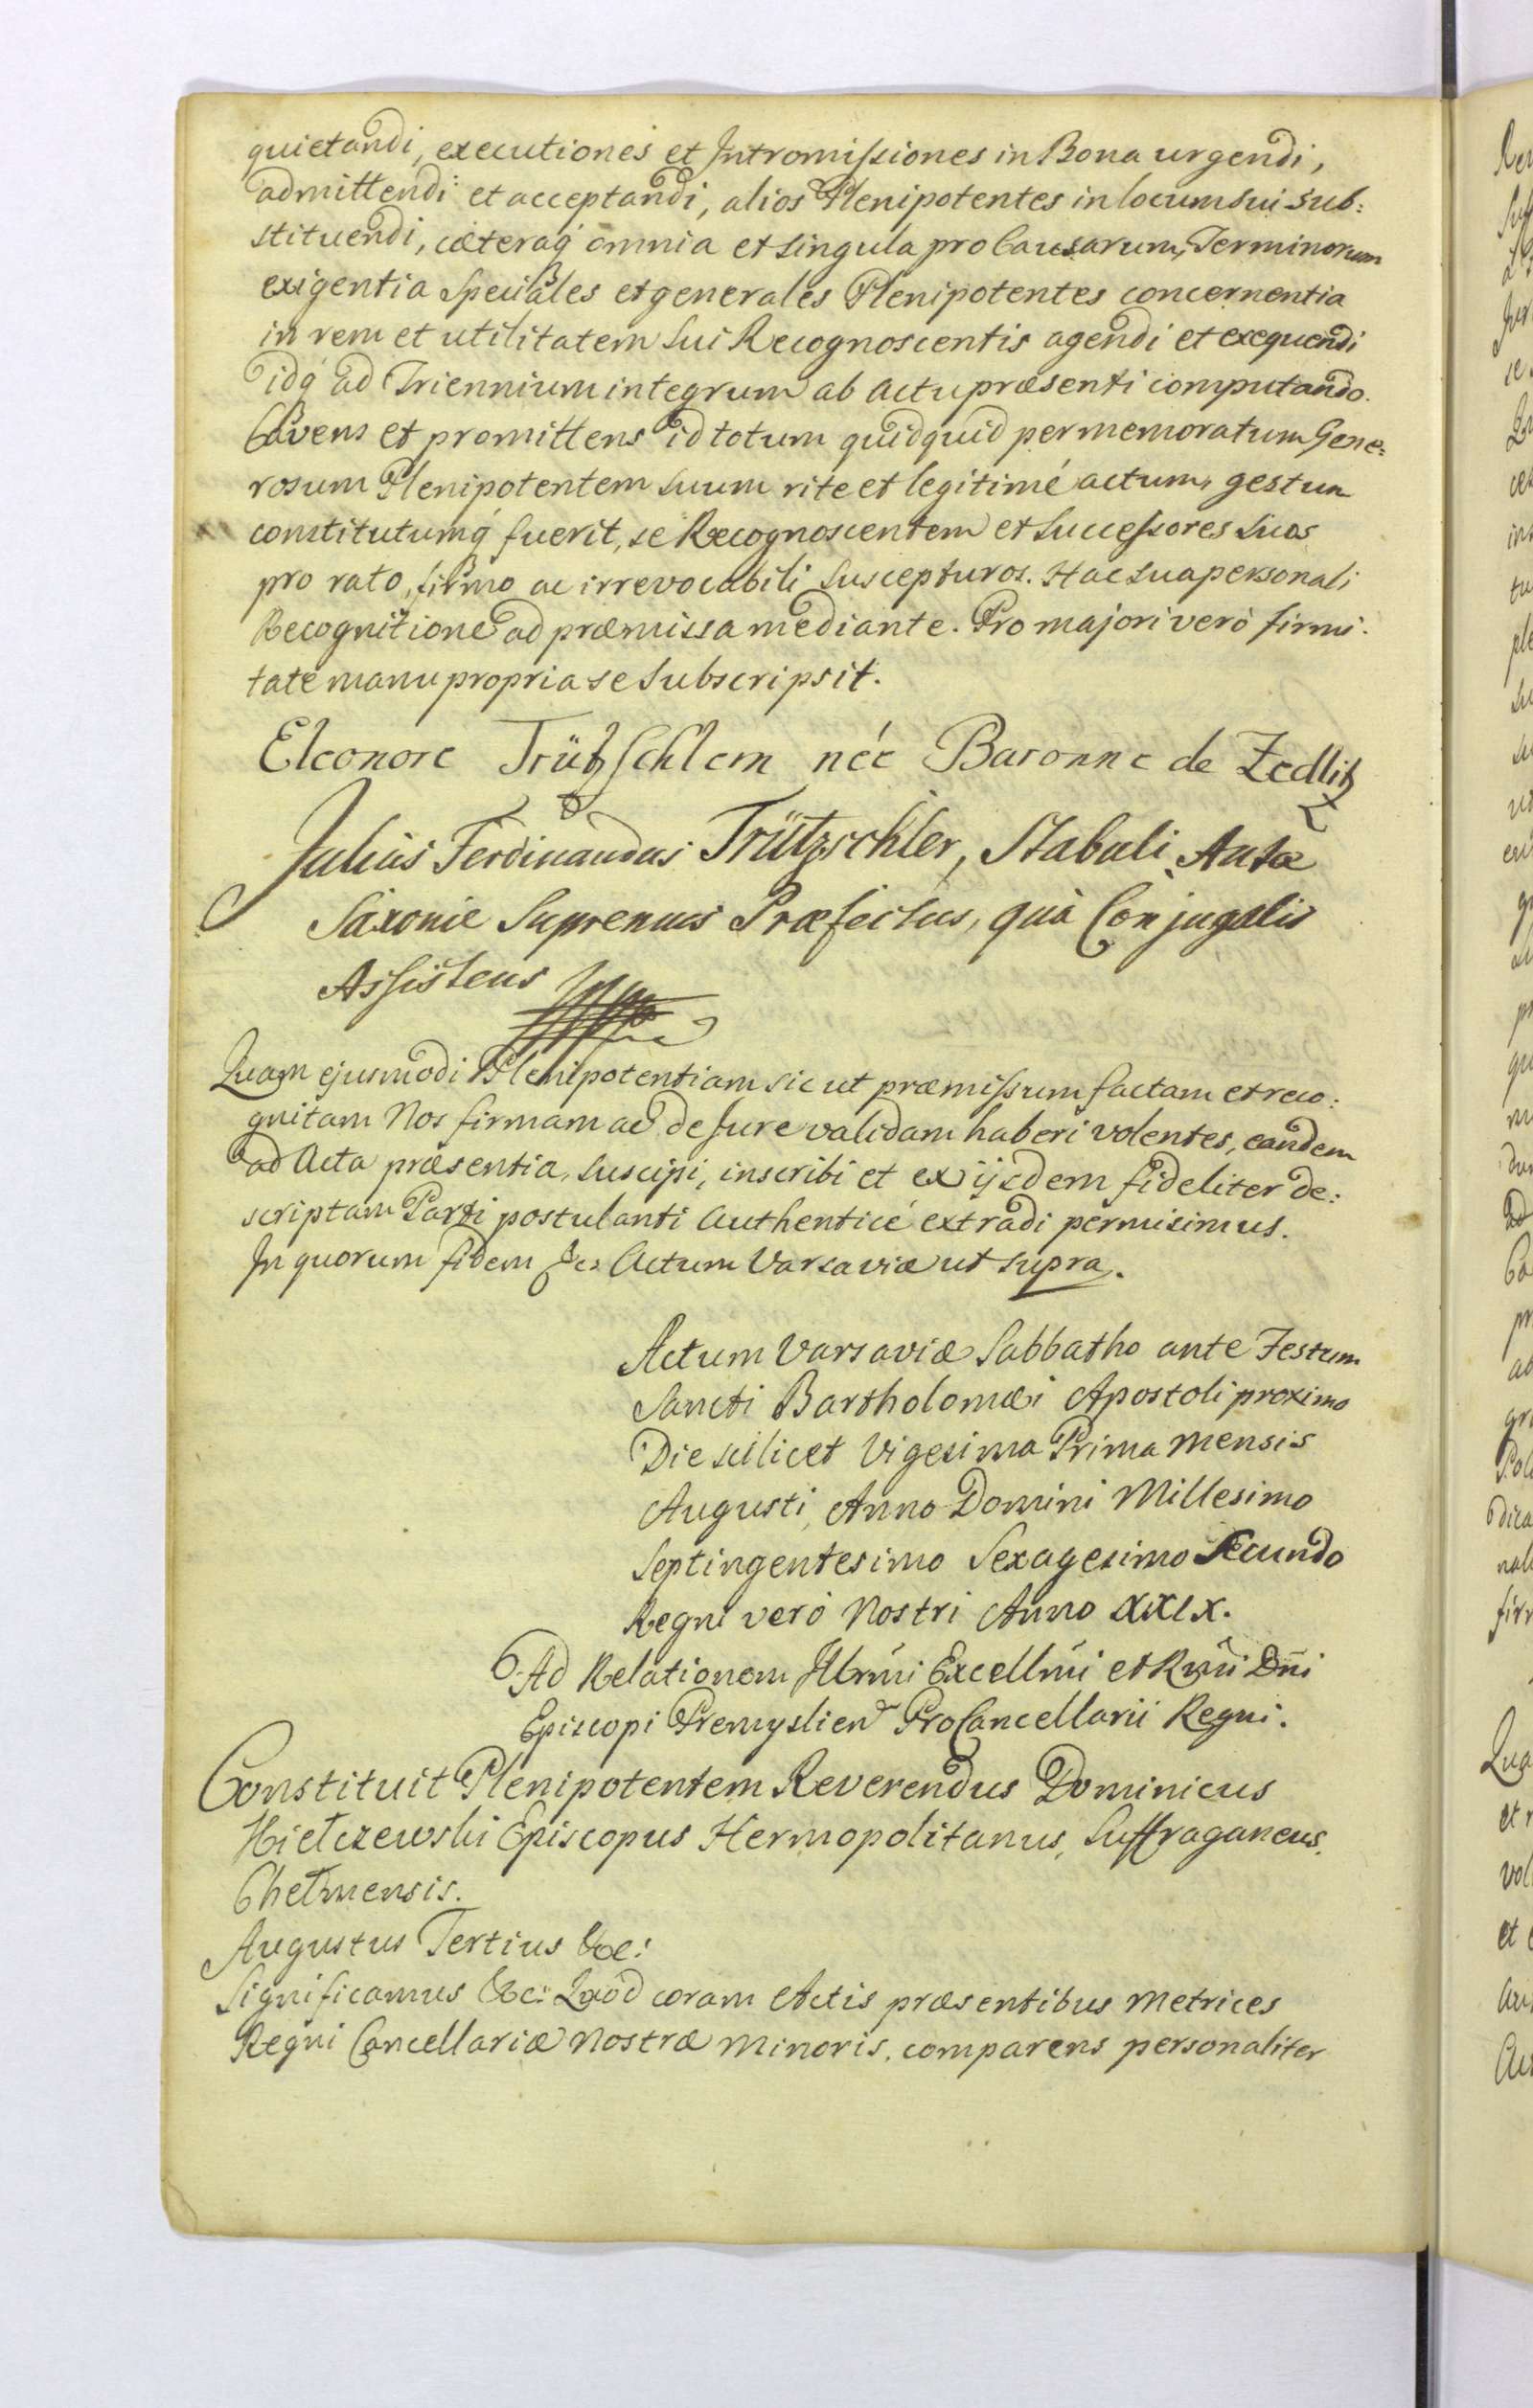 quietandi, executiones et Intromissiones in Bona urgendi,
admittendi et acceptandi, alios Plenipotentes in locum sui sub:
stituendi, cæteraq́ omnia et singula pro Causarum, Terminorum
exigentia Speciales et generales Plenipotentes concernentia
in rem et utilitatem sui Recognoscentis agendi et exequendi
idq́ ad Triennium integrum ab actu præsenti computando.
Cavens et promittens id totum quidquid per memoratum Gene:
rosum Plenipotentem suum rite et legitimé actum, gestum
constitutumq́ fuerit, se Recognoscentem et Successores suos
pro rato, firmo ac irrevocabili suscepturos. Hac sua personali
Recognitione ad præmissa mediante. Pro majori verò firmi:
tate manu propria se subscripsit.
Eleonore Trützschlern née Baronne de Zedlitz
Julius Ferdinandus Trützschler, Stabuli Aulæ
Saxonie Supremus Præfectus, quà Conjugalis
Assistens
Quam ejusmodi Plenipotentiam sic ut præmissum factam et reco:
gnitam Nos firmam ac de Jure validam haberi volentes, eandem
ad Acta præsentia suscipi, inscribi et ex ijsdem fideliter de:
scriptam Parti postulanti Authenticé extradi permisimus.
In quorum fidem &c. Actum Varsaviæ ut supra.
Actum Varsaviæ Sabbatho ante Festum
Sancti Bartholomæi Apostoli proximo
Die scilicet Vigesima Prima Mensis
Augusti, Anno Domini Millesimo
Septingentesimo Sexagesimo Secundo
Regni verò Nostri Anno XXIX.
Ad Relationem Illrmi Excellmi et Rmi Dñi
Episcopi Premyslien ProCancellarii Regni.
Constituit Plenipotentem Reverendus Dominicus
Kiełczewski Episcopus Hermopolitanus, Suffraganeus
Chełmensis.
Augustus Tertius &c:
Significamus &c: Quod coram Actis præsentibus Metrices
Regni Cancellariæ Nostræ Minoris, comparens personaliter